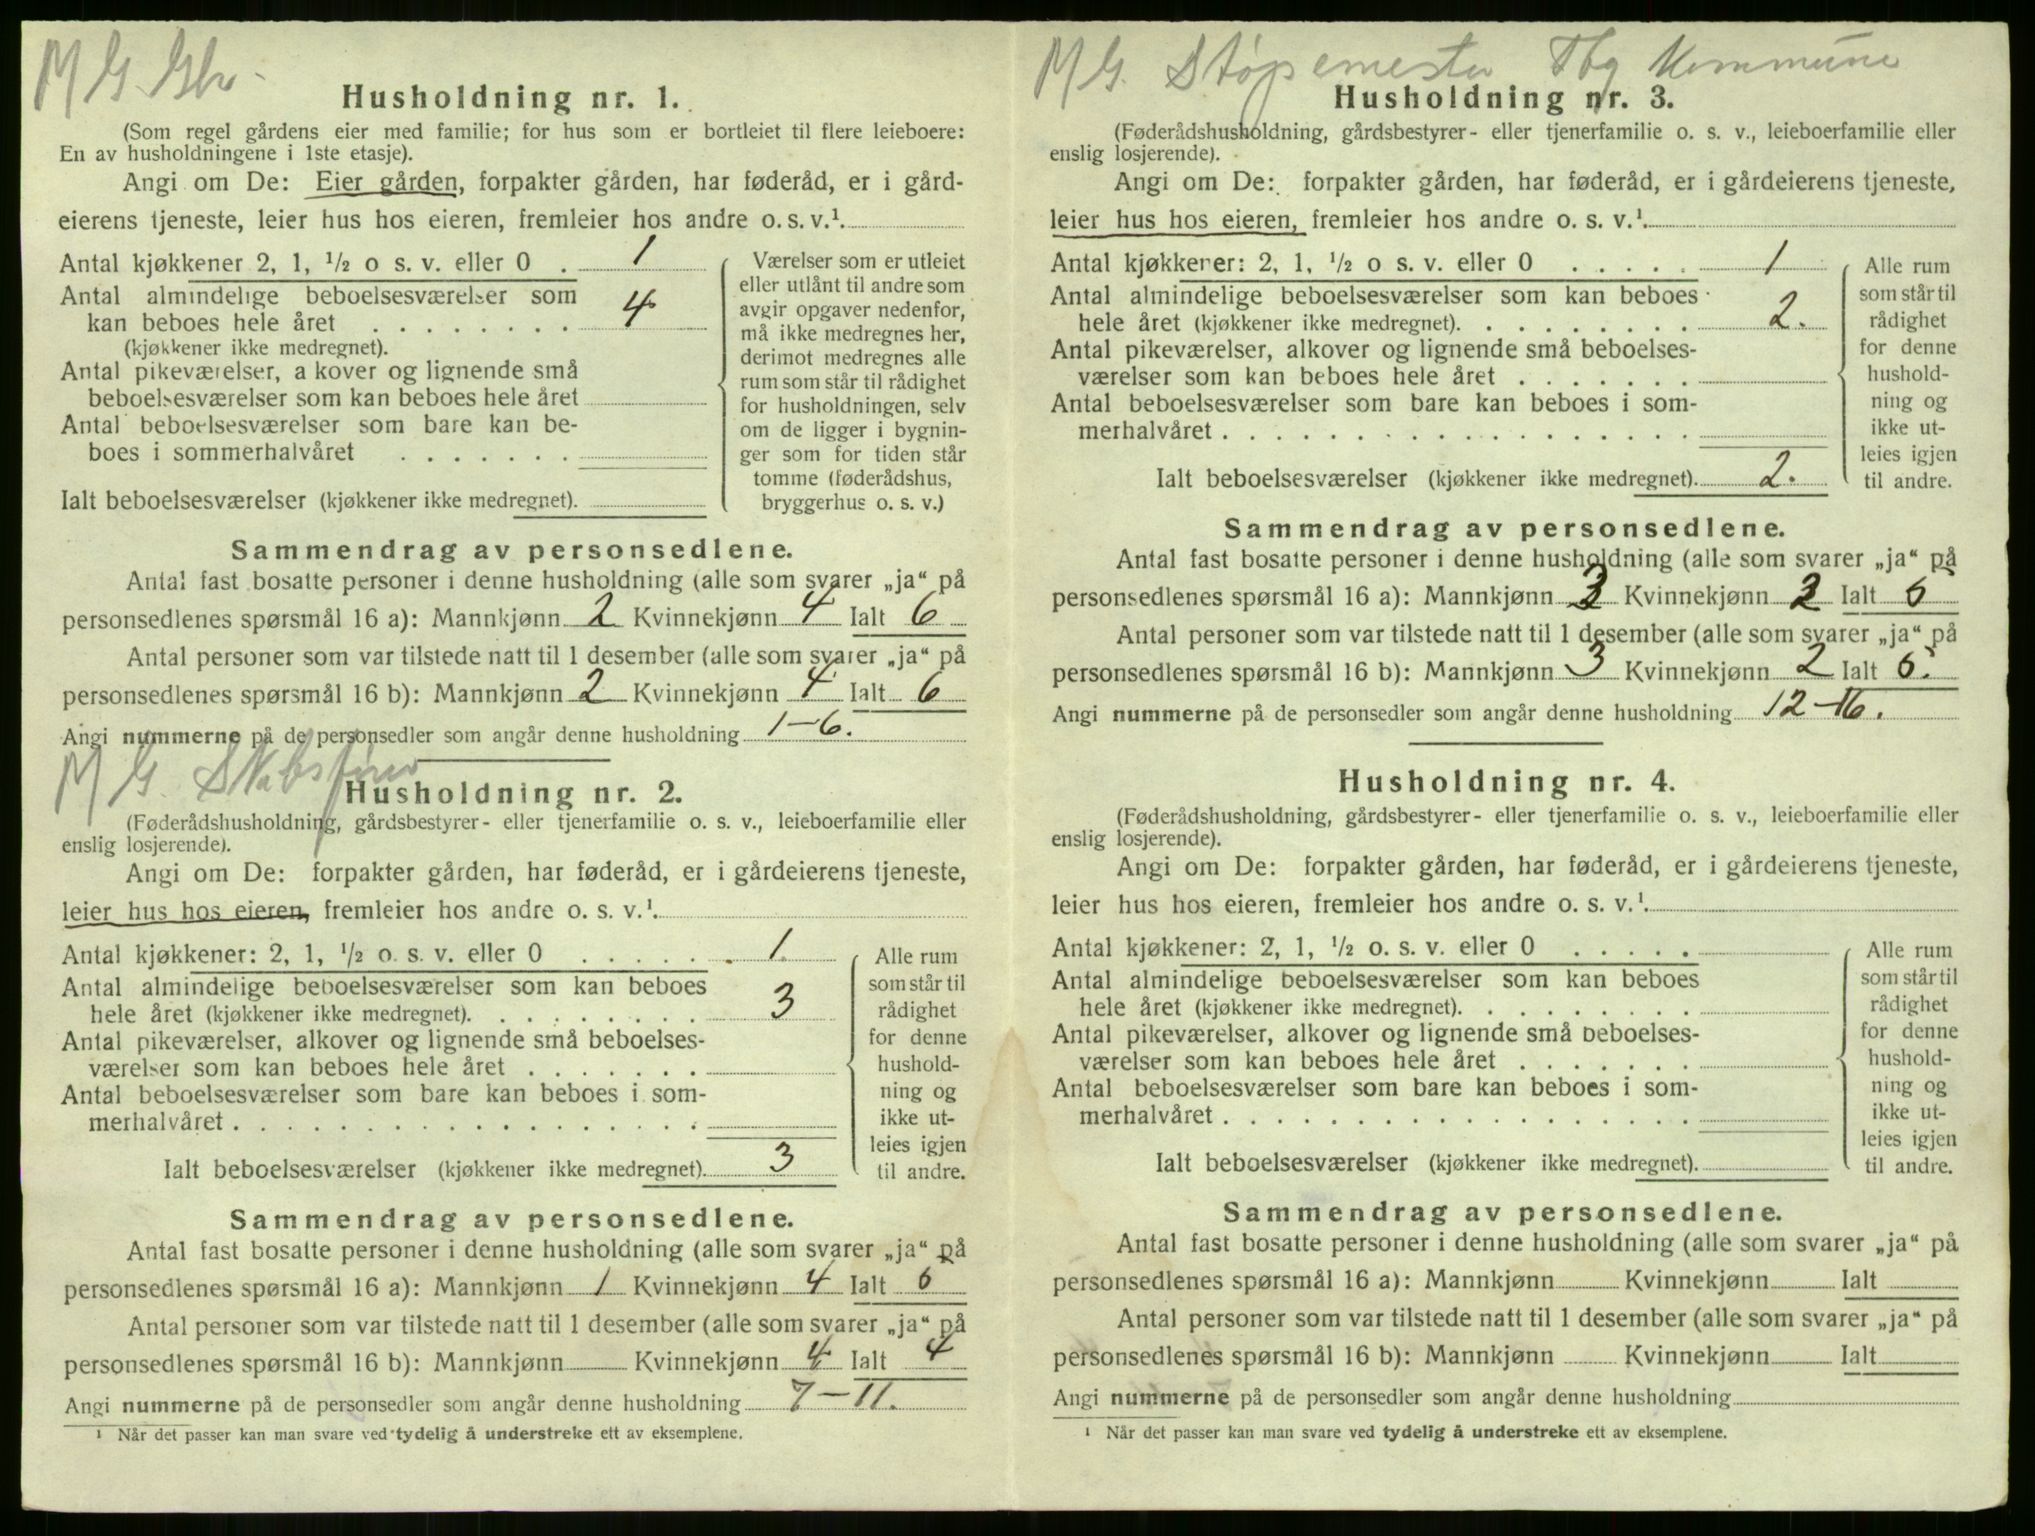 M G. Gbr.
Husholdning nr. 1.
(Som regel gårdens eier med familie; for hus som er bortleiet til flere leieboere:
En av husholdningene i 1ste etasje).
Angi om De: Eier gården, forpakter gården, har føderåd, er i gård-
eierens tjeneste, leier hus hos eieren, fremleier hos andre o. s. v.¹.
Antal kjøkkener 2, 1, ½ o s. v. eller 0 . 1
Antal almindelige beboelsesværelser som
kan beboes hele året . . . . . . . . 4
(kjøkkener ikke medregnet).
Antal pikeværelser, a kover og lignende små
beboelsesværelser som kan beboes hele året
Antal beboelsesværelser som bare kan be-
boes i sommerhalvåret . . . . . . .
Ialt beboelsesværelser (kjøkkener ikke medregnet).
Værelser som er utleiet
eller utlånt til andre som
avgir opgaver nedenfor,
må ikke medregnes her,
derimot medregnes alle
rum som står til rådighet
for husholdningen, selv
om de ligger i bygnin-
ger som for tiden står
tomme (føderådshus,
bryggerhus o. s. v.)
Sammendrag av personsedlene.
Antal fast bosatte personer i denne husholdning (alle som svarer „ja“ på
personsedlenes spørsmål 16 a): Mannkjønn 2 Kvinnekjønn 4 Ialt 6
Antal personer som var tilstede natt til 1 desember (alle som svarer „ja“ på
personsedlenes spørsmål 16 b): Mannkjønn 2 Kvinnekjønn 4 Ialt 6
Angi nummerne på de personsedler som angår denne husholdning 1–6.
M G.
Husholdning nr. 2.
(Føderådshusholdning, gårdsbestyrer- eller tjenerfamilie o. s. v., leieboerfamilie eller
enslig losjerende).
Angi om De: forpakter gården, har føderåd, er i gårdeierens tjeneste,
leier hus hos eieren, fremleier hos andre o. s. v.¹.
Antal kjøkkener: 2, 1, ½ o. s. v. eller 0 . . . . . . 1.
Antal almindelige beboelsesværelser som kan beboes
hele året (kjøkkener ikke medregnet). . . . . . . . . 3
Antal pikeværelser, alkover og lignende små beboelses-
værelser som kan beboes hele året . . . . . . .
Antal beboelsesværelser som bare kan beboes i som-
merhalvåret . . . . . . . . . . . . . . . . . .
Ialt beboelsesværelser (kjøkkener ikke medregnet). 3
Alle rum
som står til
rådighet
for denne
hushold-
ning og
ikke ut-
leies igjen
til andre.
Sammendrag av personsedlene.
Antal fast bosatte personer i denne husholdning (alle som svarer „ja“ på
personsedlenes spørsmål 16 a): Mannkjønn 1 Kvinnekjønn 4 Ialt 5
Antal personer som var tilstede natt til 1 desember (alle som svarer „ja“ på
personsedlenes spørsmål 16 b): Mannkjønn Kvinnekjønn 4 Ialt 4
Angi nummerne på de personsedler som angår denne husholdning 7–11.
¹ Når det passer kan man svare ved tydelig å understreke ett av eksemplene.
M G. Støpemester Tbg Kommune
Husholdning nr. 3.
(Føderådshusholdning, gårdsbestyrer- eller tjenerfamilie o. s. v., leieboerfamilie eller
enslig losjerende).
Angi om De: forpakter gården, har føderåd, er i gårdeierens tjeneste,
leier hus hos eieren, fremleier hos andre o. s. v.¹.
Antal kjøkkener: 2, 1, ½ o s. v. eller 0 . . . . . 1
Antal almindelige beboelsesværelser som kan beboes
hele året (kjøkkener ikke medregnet). . . . . . . . . 2.
Antal pikeværelser, alkover og lignende små beboelses-
værelser som kan beboes hele året . . . . . . .
Antal beboelsesværelser som bare kan beboes i som-
merhalvåret . . . . . . . . . . . . . . . . . .
Ialt beboelsesværelser (kjøkkener ikke medregnet). 2.
Alle rum
som står til
rådighet
for denne
hushold-
ning og
ikke ut-
leies igjen
til andre.
Sammendrag av personsedlene.
Antal fast bosatte personer i denne husholdning (alle som svarer „ja“ på
personsedlenes spørsmål 16 a): Mannkjønn 3 Kvinnekjønn 2 Ialt 5
Antal personer som var tilstede natt til 1 desember (alle som svarer „ja“ på
personsedlenes spørsmål 16 b): Mannkjønn 3 Kvinnekjønn 2 Ialt 5.
Angi nummerne på de personsedler som angår denne husholdning 12–16.
Husholdning nr. 4.
(Føderådshusholdning, gårdsbestyrer- eller tjenerfamilie o. s. v., leieboerfamilie eller
enslig losjerende).
Angi om De: forpakter gården, har føderåd, er i gårdeierens tjeneste,
leier hus hos eieren, fremleier hos andre o. s. v.¹.
Antal kjøkkener: 2, 1, ½ o. s. v. eller 0 . . . . .
Antal almindelige beboelsesværelser som kan beboes
hele året (kjøkkener ikke medregnet). . . . . . . . .
Antal pikeværelser, alkover og lignende små beboelses-
værelser som kan beboes hele året . . . . . . .
Antal beboelsesværelser som bare kan beboes i som-
merhalvåret . . . . . . . . . . . . . . . . . .
Ialt beboelsesværelser (kjøkkener ikke medregnet).
Alle rum
som står til
rådighet
for denne
hushold-
ning og
ikke ut-
leies igjen
til andre.
Sammendrag av personsedlene.
Antal fast bosatte personer i denne husholdning (alle som svarer „ja“ på
personsedlenes spørsmål 16 a): Mannkjønn Kvinnekjønn Ialt
Antal personer som var tilstede natt til 1 desember (alle som svarer „ja“ på
personsedlenes spørsmål 16 b): Mannkjønn Kvinnekjønn Ialt
Angi nummerne på de personsedler som angår denne husholdning
¹ Når det passer kan man svare ved tydelig å understreke ett av eksemplene.